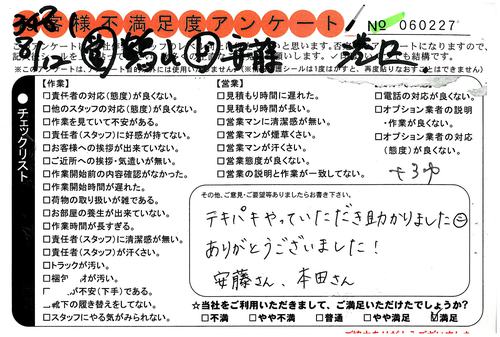 お客様不満足度アンケート
No 060227
8/12
港区
チェックリスト
【作業】
□責任者の対応(態度)が良くない。
□他のスタッフの対応(態度)が良くない。
□作業を見ていて不安がある。
□責任者(スタッフ)に好感が持てない。
□お客様への挨拶が出来ていない。
□ご近所への挨拶・気遣いが無い。
□作業開始前の内容確認がなかった。
□作業開始時間が遅れた。
□荷物の取り扱いが雑である。
□お部屋の養生が出来ていない。
□作業時間が長すぎる。
□責任者(スタッフ)に清潔感が無い。
□責任者(スタッフ)が汗くさい。
□トラックが汚い。
が汚い。
が不安(下手)である。
靴下の履き替えをしてない。
□スタッフにやる気がみられない。
【営業】
□見積もり時間に遅れた。
□見積もり時間が長い。
□営業マンに清潔感が無い。
□営業マンが煙草くさい。
□営業マンが汗くさい。
□営業態度が良くない。
□営業の説明と作業が一致してない。
□電話の対応が良くない。
□オプション業者の説明
・作業が良くない。
□オプション業者の対応
(態度)が良くない。
その他、ご意見・ご要望等ありましたらお書き下さい。
テキパキやっていただき助かりました
ありがとうございました!
安藤さん、本田さん
☆当社をご利用いただきまして、ご満足いただけたでしょうか?
□不満 □やや不満 □普通 □やや満足 ☑満足